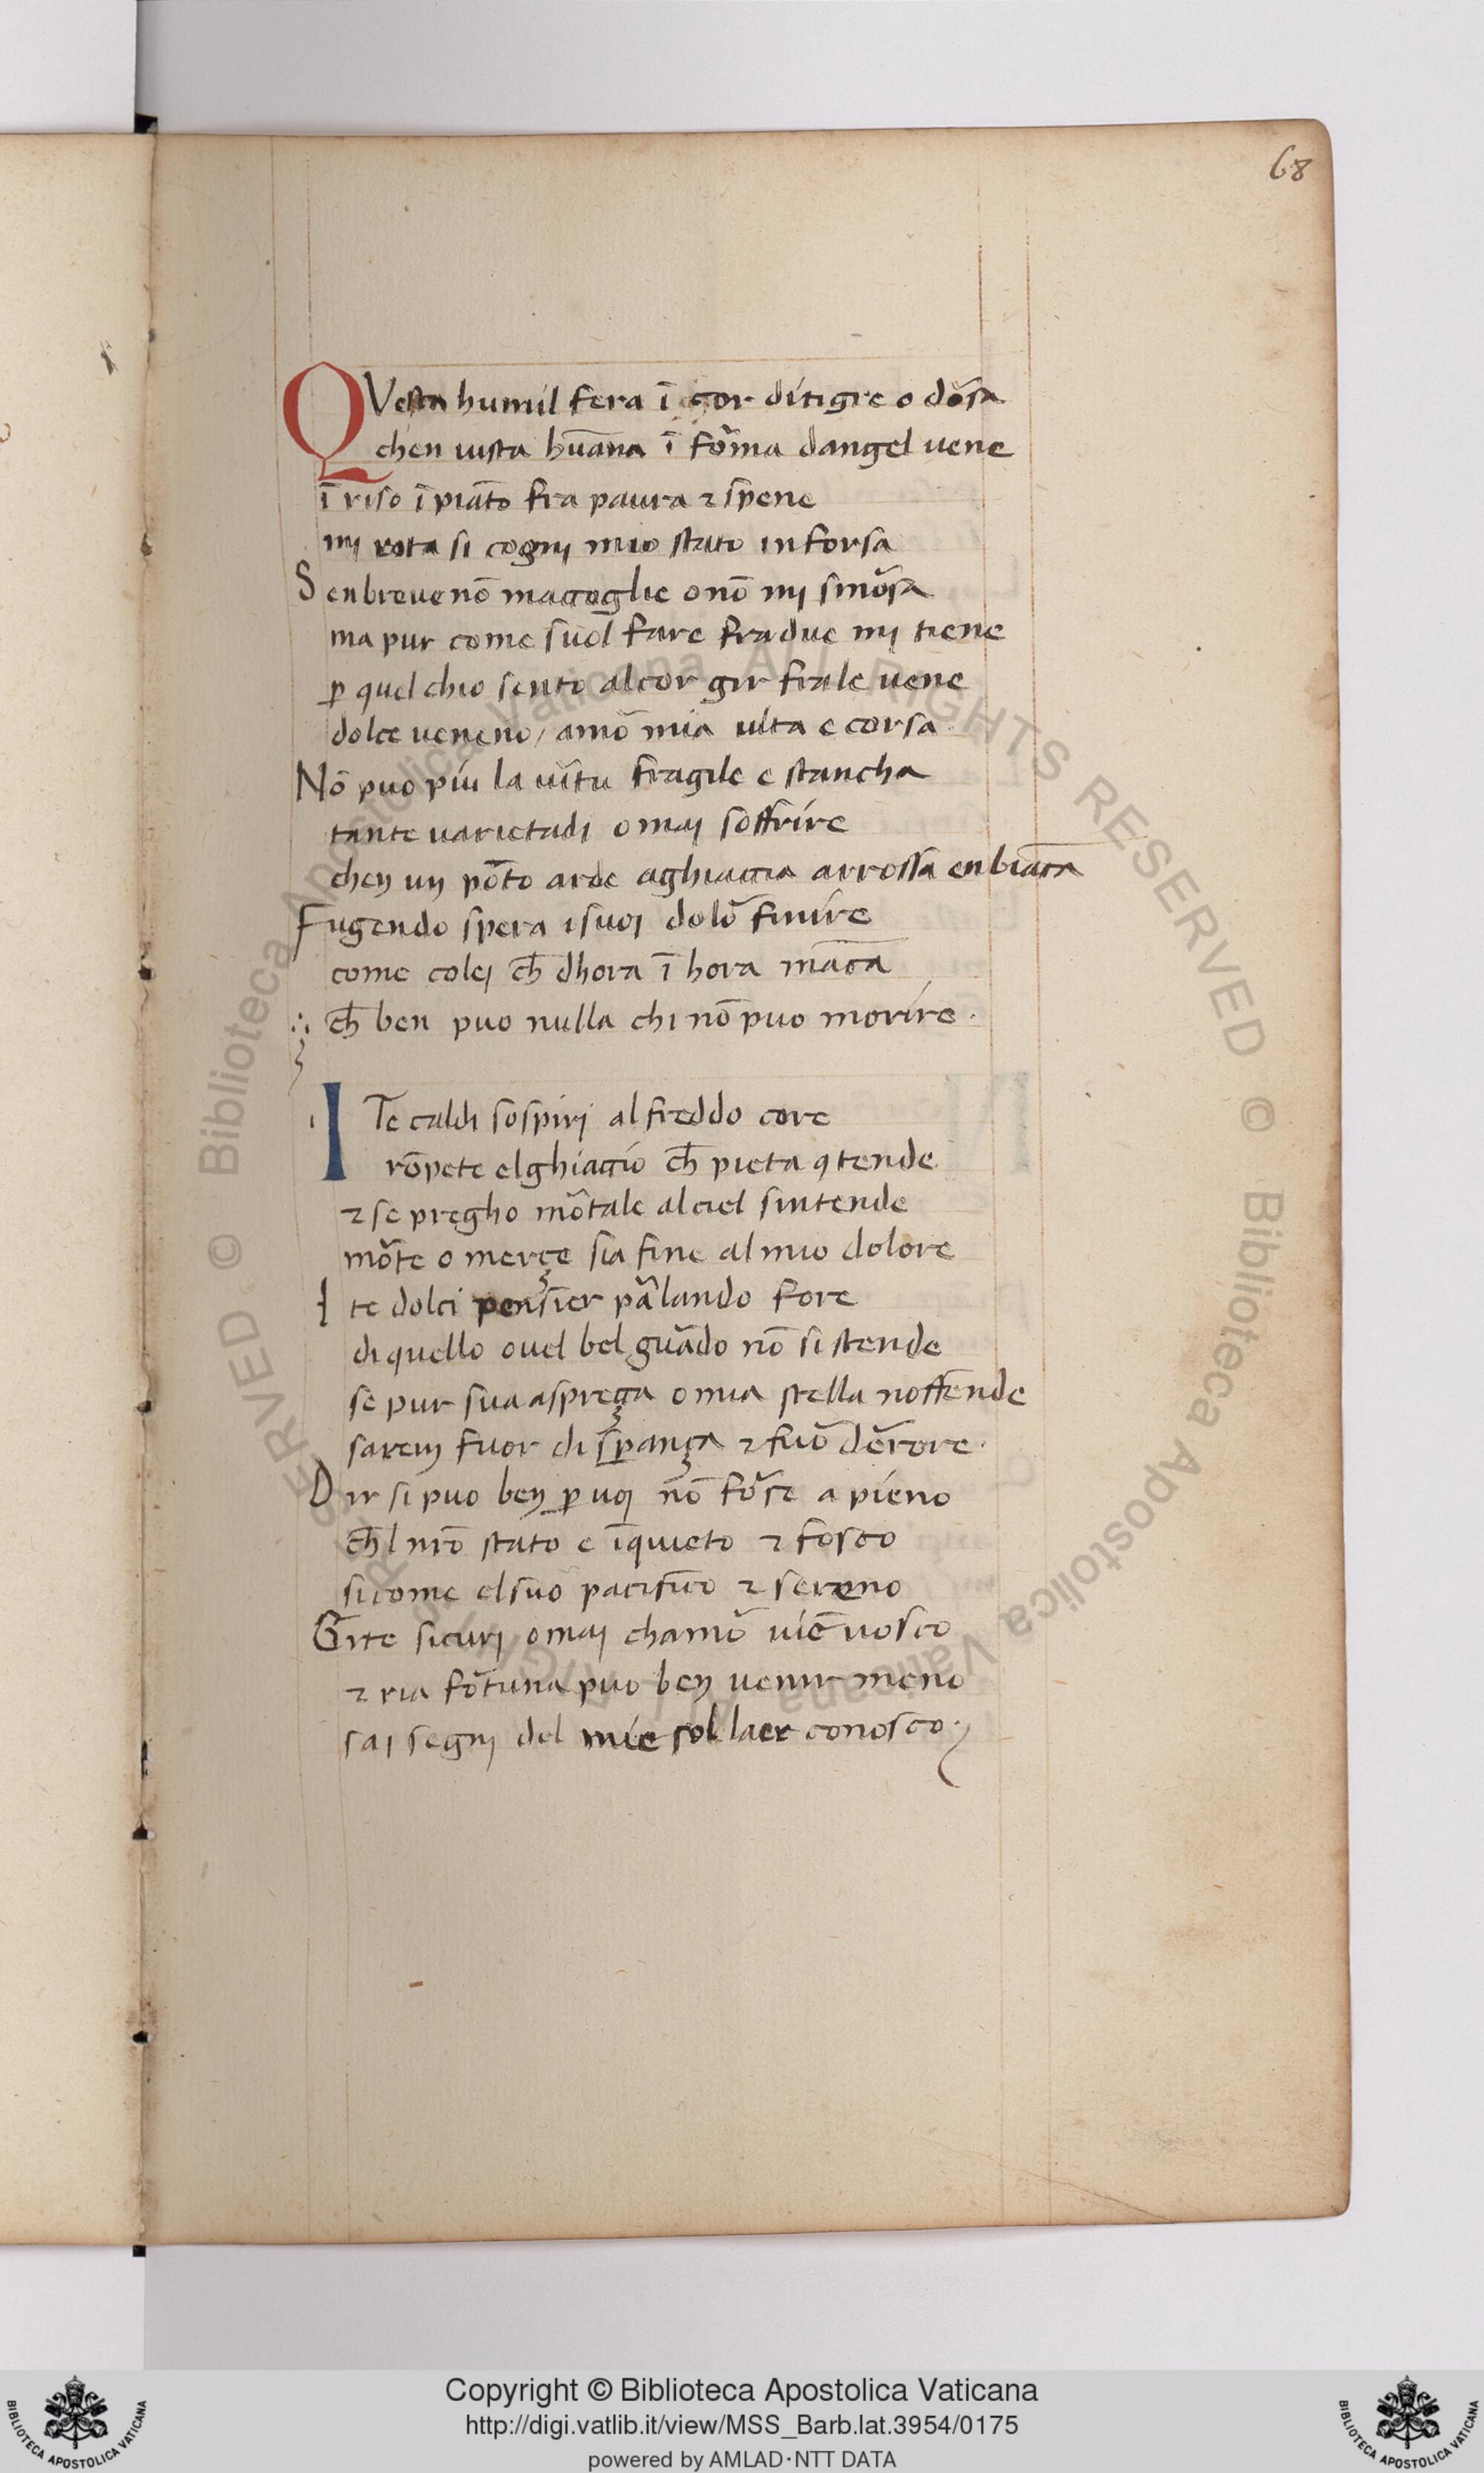 68
QVesta humil fera ī cor di tigre o dorsa
chen uista hūana ī forma dangel uene
ī riso ī piāto fra paura ⁊ spene
mj rota si cognj mio stato in forsa
Senbreue nō maccoglie o nō mj smorsa
ma pur come suol fare fra due mj tiene
ꝑ quel chio sento al cor gir fra le uene
dolce ueneno / amor mia uita e corsa
Nō puo piu la uirtu fragile e stancha
tante uarietadi omaj soffrire
chen un pōto arde aghiaccia arrossa enbiāca
Fugendo spera i suoj dolor finire
come colej ch̄ dhora ī hora māca
ch̄ ben puo nulla chi nō puo morire .
ITe caldi sospirj al freddo core
rōpete el ghiaccio ch̄ pieta ꝯtende
⁊ se pregho mortale al ciel sintende
morte o merçe sia fine al mio dolore
Ite dolci pensier parlando fore
di quello ouel bel guardo nō si stende
se pur sua aspreça o mia stella noffende
sarem fuor di sꝑança ⁊ fuor derrore .
Dir si puo ben ꝑ uoj nō forse a pieno
ch̄l nrō stato e īquieto ⁊ fosco
si come el suo pacifico ⁊ sereno
Gite sicurj omaj chamor uiē uosco
⁊ ria fortuna puo ben uenir meno
sai segnj del mie sol laer conosco
© Biblioteca Apostolica Vaticana ALL RIGHTS RESERVED © Biblioteca Apostolica Vaticana ALL RIGHTS RESERVED
Copyright © Biblioteca Apostolica Vaticana
http://digi.vatlib.it/view/MSS_Barb.lat.3954/0175
powered by AMLAD·NTT DATA
BIBLIOTECA APOSTOLICA VATICANA
BIBLIOTECA APOSTOLICA VATICANA